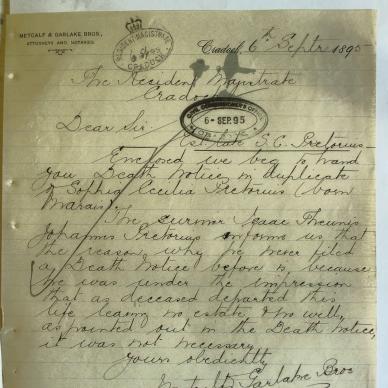 METCALF & GARLAKE BROS.,
ATTORNEYS AND NOTARIES.
Cradock, 6th Septr 1895
RESIDENT MAGISTRATE
CRADOCK
The Resident Magistrate
Cradock
CIVIL COMMISSIONER'S OFFICE
6-SEP.95
CRADOCK
Dear Sir
Est. late S. C. Pretorius
Enclosed we beg to hand
you Death Notice in duplicate
of Sophia Cecilia Pretorius (born
Marais).
The survivor Isaac Theunis
Johannes Pretorius informs us that
the reason why he never filed
a Death Notice before is, because
he was under the impression
that as deceased departed this
life leaving no estate & no will,
as pointed out in the Death Notice,
it was not necessary
Yours obediently
Metcalf & Garlake Bros